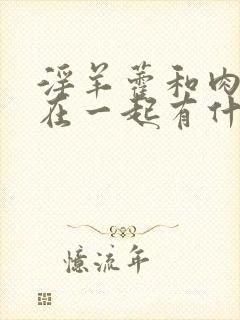 淫羊藿和肉
在一起有什
憶流年